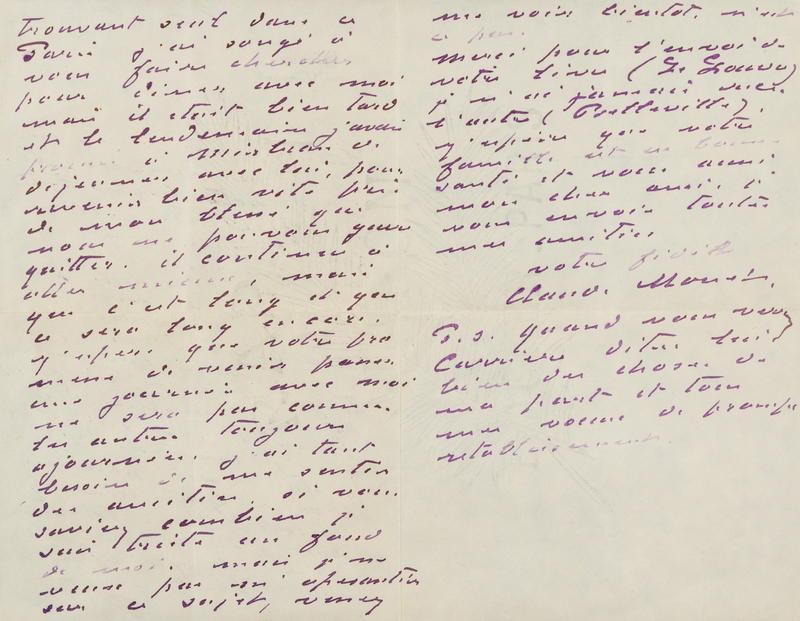 trouvant seul dans ce
Paris j'ai songé à
vous faire chercher
pour diner avec moi
mais il etait bien tard
et le lendemain j'avais
promis à Mirbeau de
dejeuner avec lui, pour
revenir bien vite près
de mon blessé que
nous ne pouvons guere
quitter. il continue à
aller mieux, mais
que c'est long et que
ce sera long encore.
j'espere que votre pro
messe de venir passer
une journée avec moi
ne sera pas comme
les autres toujours
ajournée. j'ai tant
besoin de me sentir
des amitiés, si vous
saviez combien je
suis triste au fond
de moi. mais je ne
veux pas m'apesantir
sur ce sujet, venez
me voir bientot, n'est
ce pas.
merci pour l'envoi de
votre livre (Le Louvre)
je n'ai jamais reçu
l'autre (Belleville).
j'espère que votre
famille est en bonne
santé et vous aussi
mon cher ami, je
vous envoie toutes
mes amitiés
votre fidèle
Claude Monet.
P.S. quand vous verrez
Carrière dites lui
bien des choses de
ma part et tous
mes voeux de prompt
retablissement.